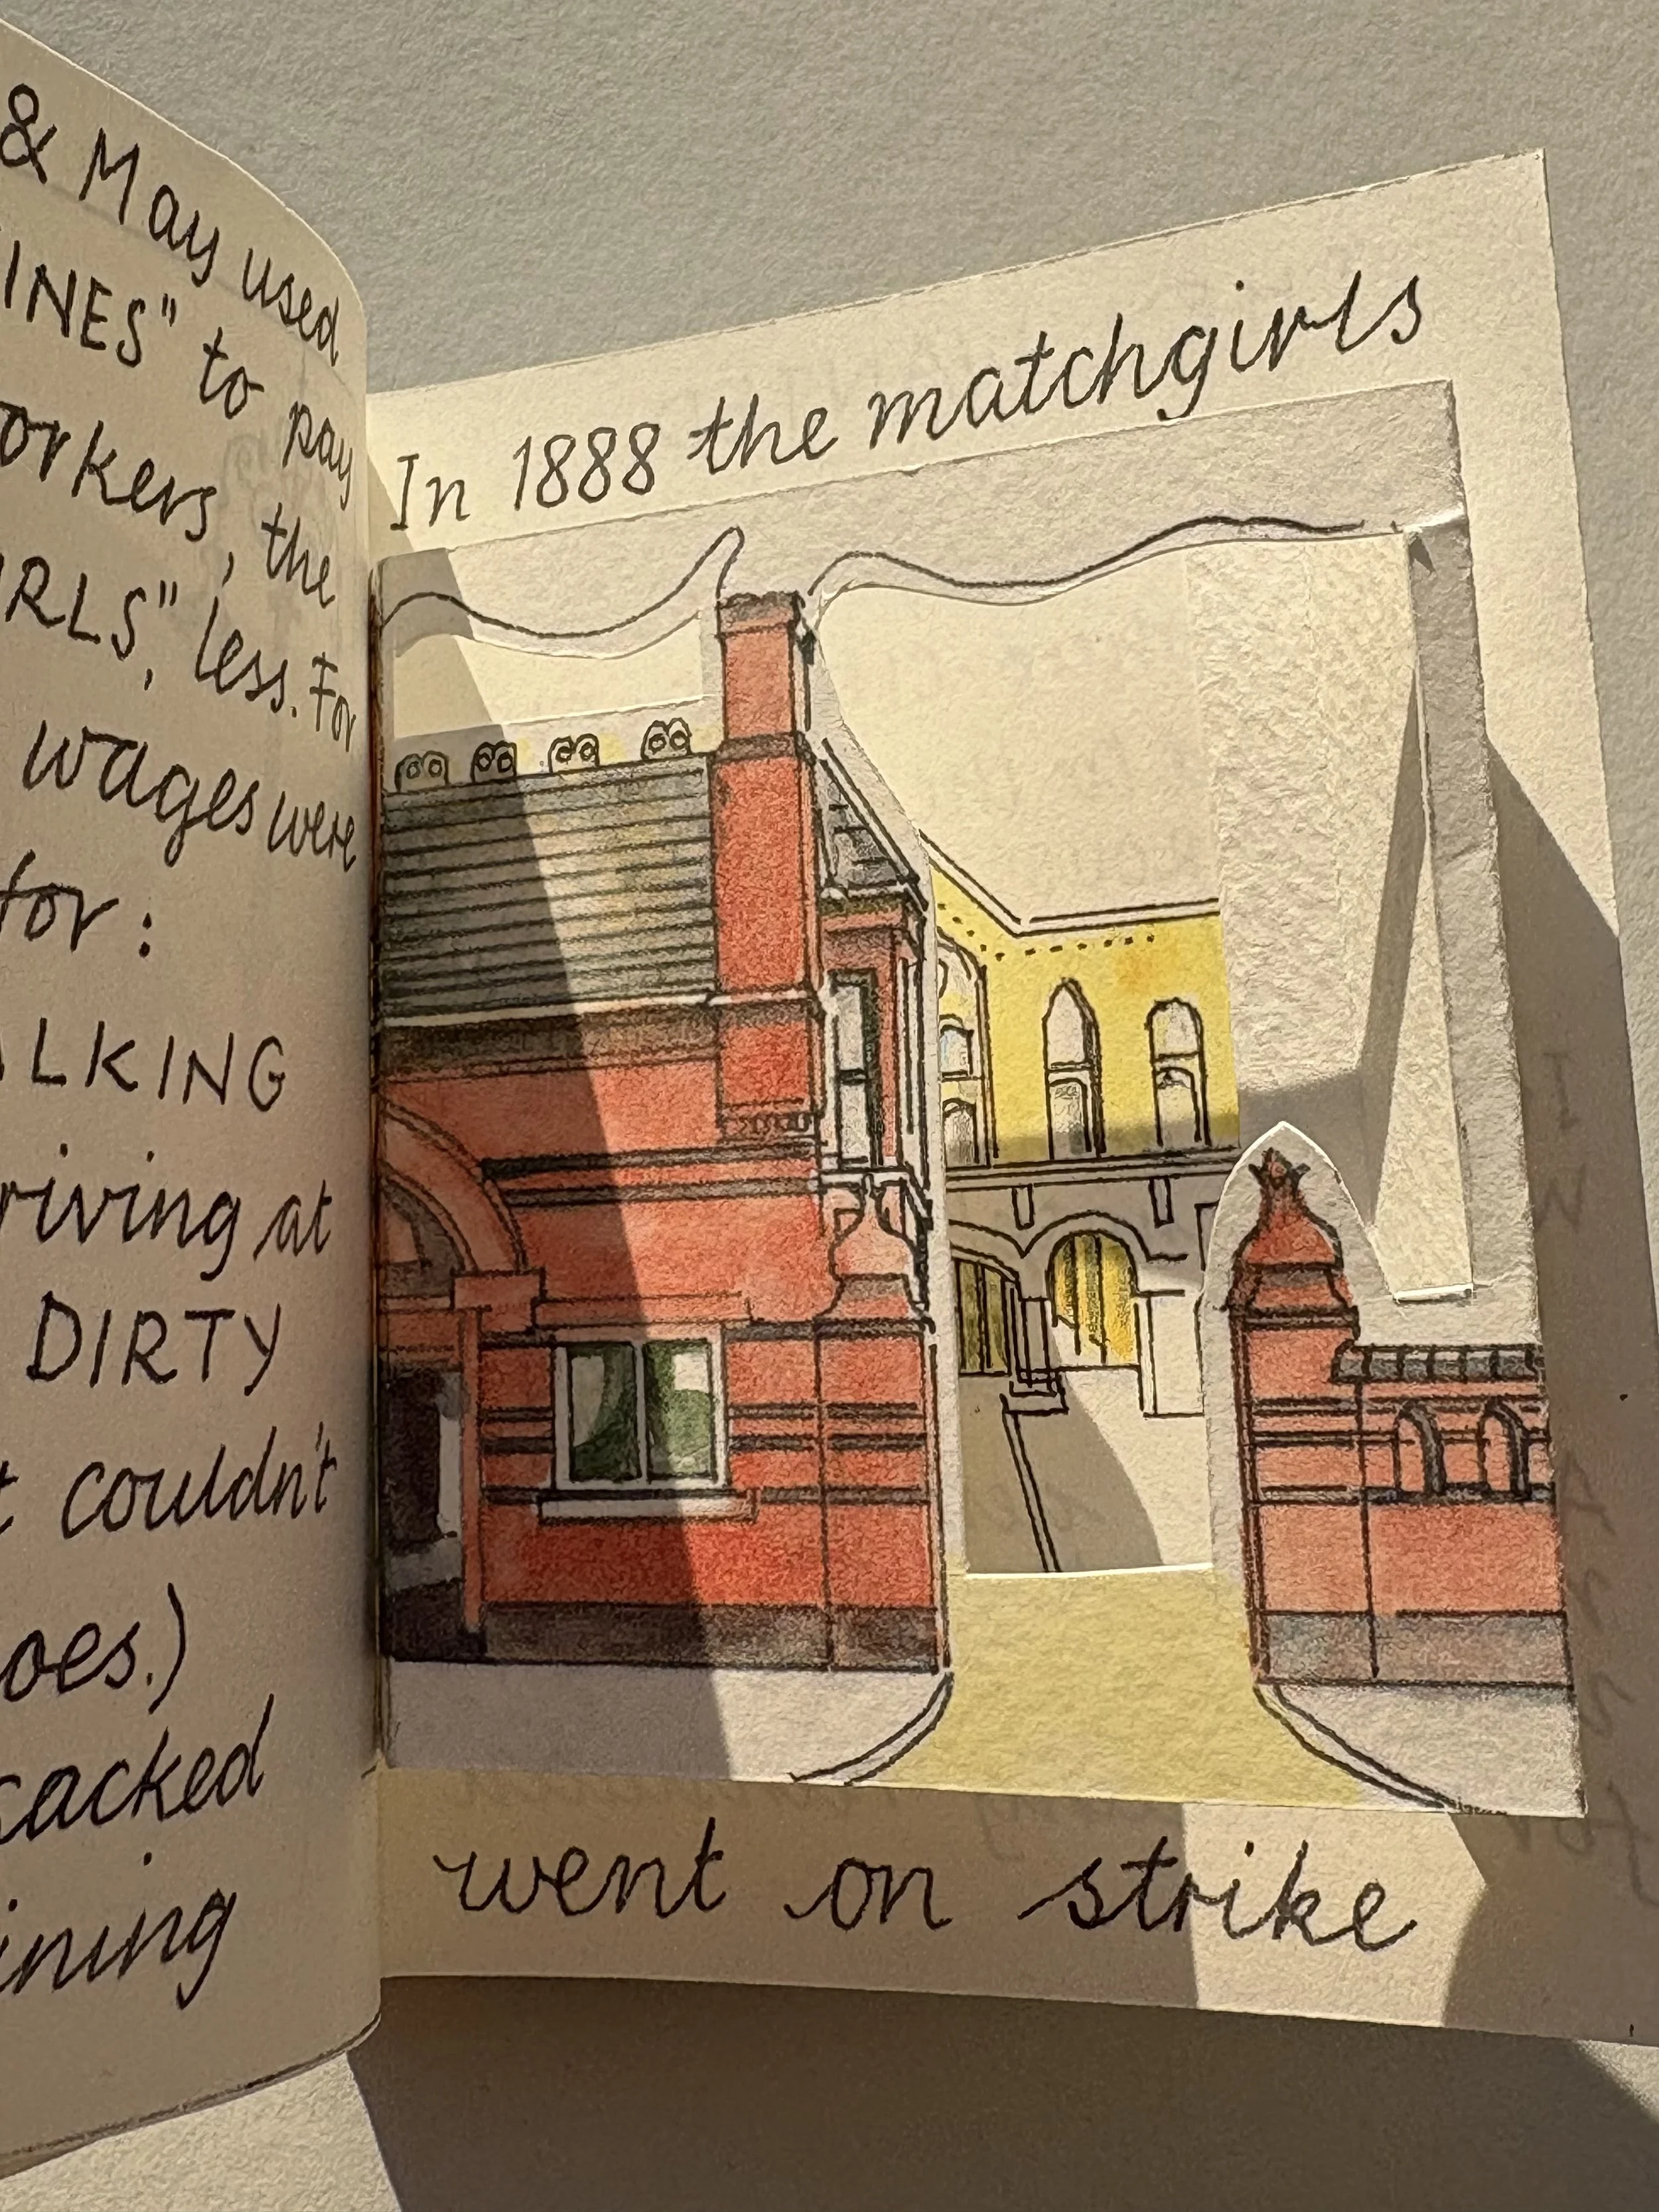 & May used
INES" to pay
orkers, the
IRLS," less. For
wages were
for:
ALKING
riving at
DIRTY
t couldn't
oes.)
sacked
ining
In 1888 the matchgirls
went on strike